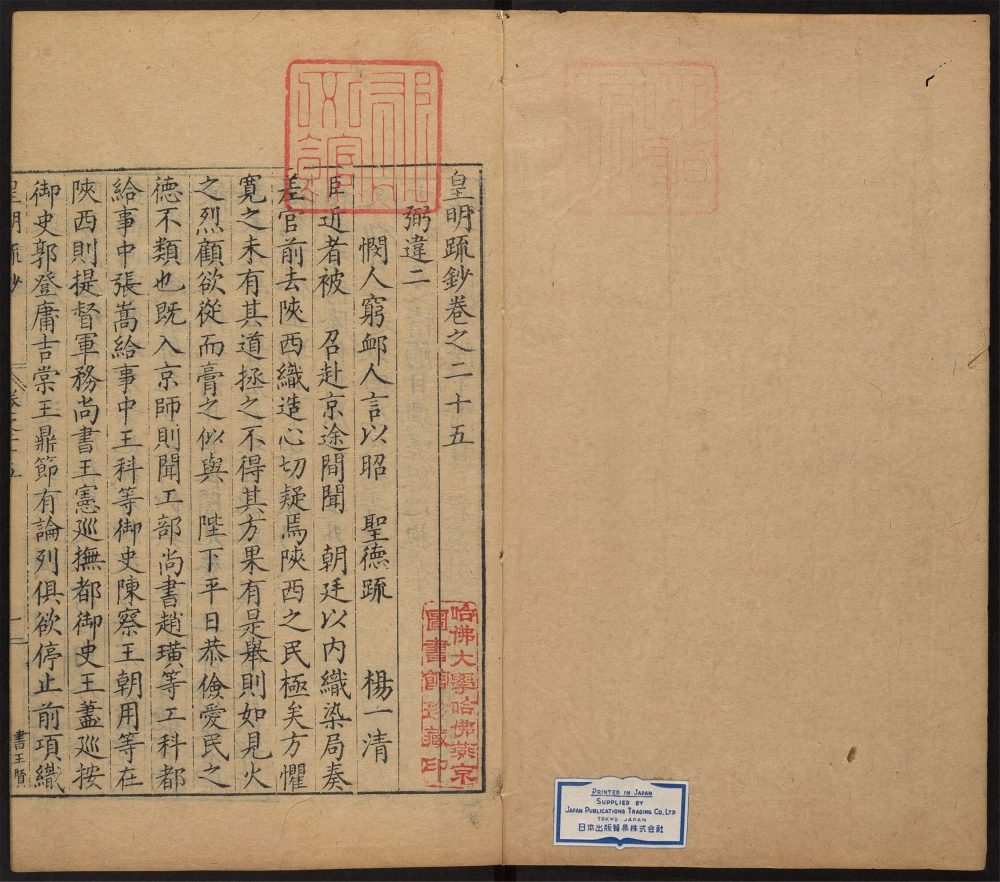 皇明疏鈔卷之二十五
弼違二
憫人窮卹人言以昭 聖德疏 楊一清
臣近者被 召赴京途間聞 朝廷以內織染局奏
差官前去陝西織造心切疑焉陝西之民極矣方懼
寬之未有其道拯之不得其方果有是舉則如見火
之烈顧欲從而膏之似與 陛下平日恭儉愛民之
德不類也既入京師則聞工部尚書趙璜等工科都
給事中張嵩給事中王科等御史陳察王朝用等在
陝西則提督軍務尚書王憲巡撫都御史王藎巡按
御史郭登庸吉棠王鼎節有論列俱欲停止前項織
皇明疏鈔 卷之二十五 一 書王賢
哈佛大學哈佛燕京
圖書館珍藏印
PRINTED IN JAPAN
SUPPLIED BY
JAPAN PUBLICATIONS TRADING CO., LTD
TOKYO JAPAN
日本出版貿易株式会社